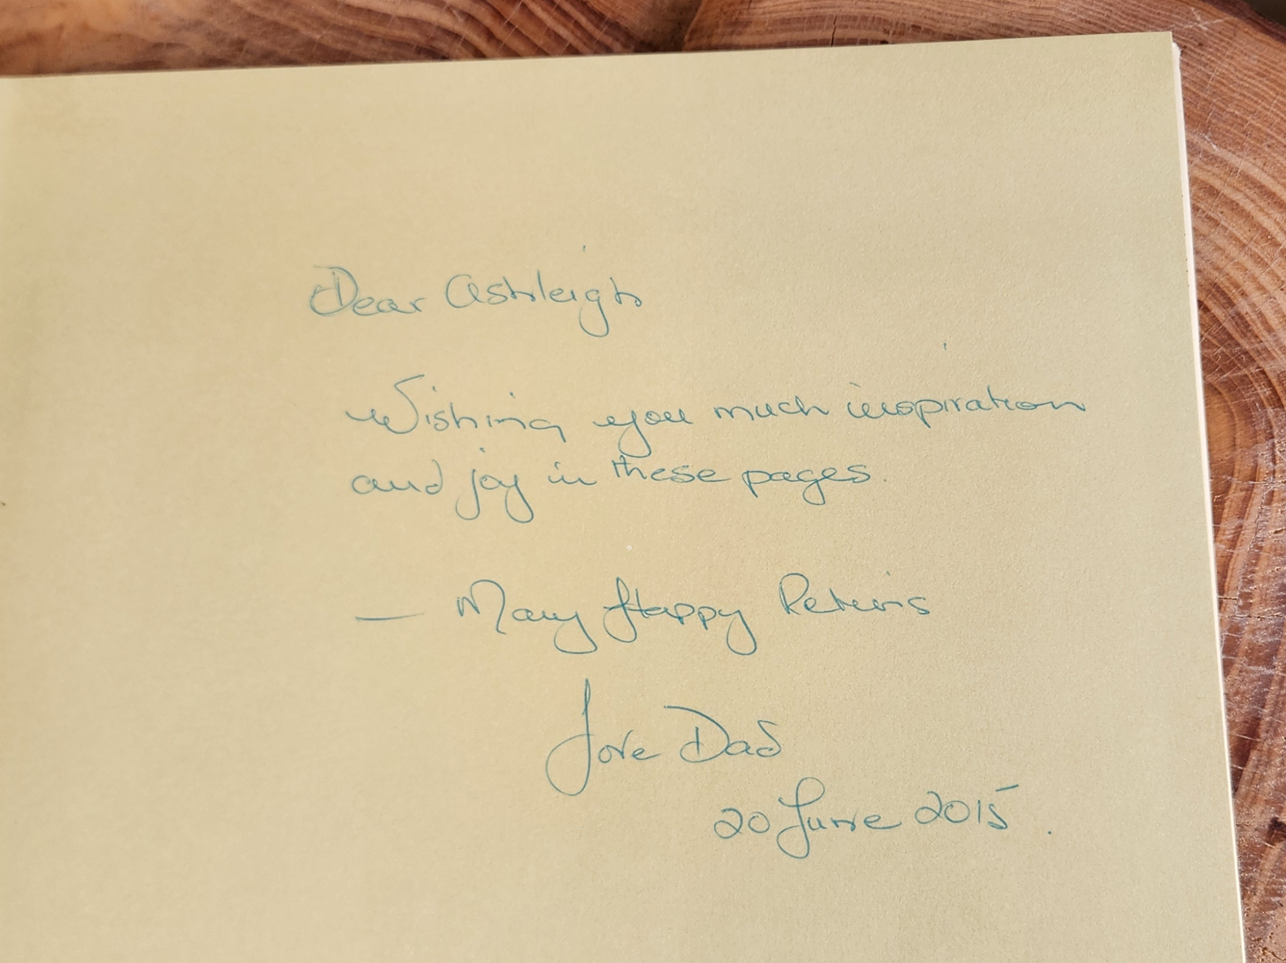 Dear Ashleigh
Wishing you much inspiration
and joy in these pages.
— Many Happy Returns
Love Dad
20 June 2015.